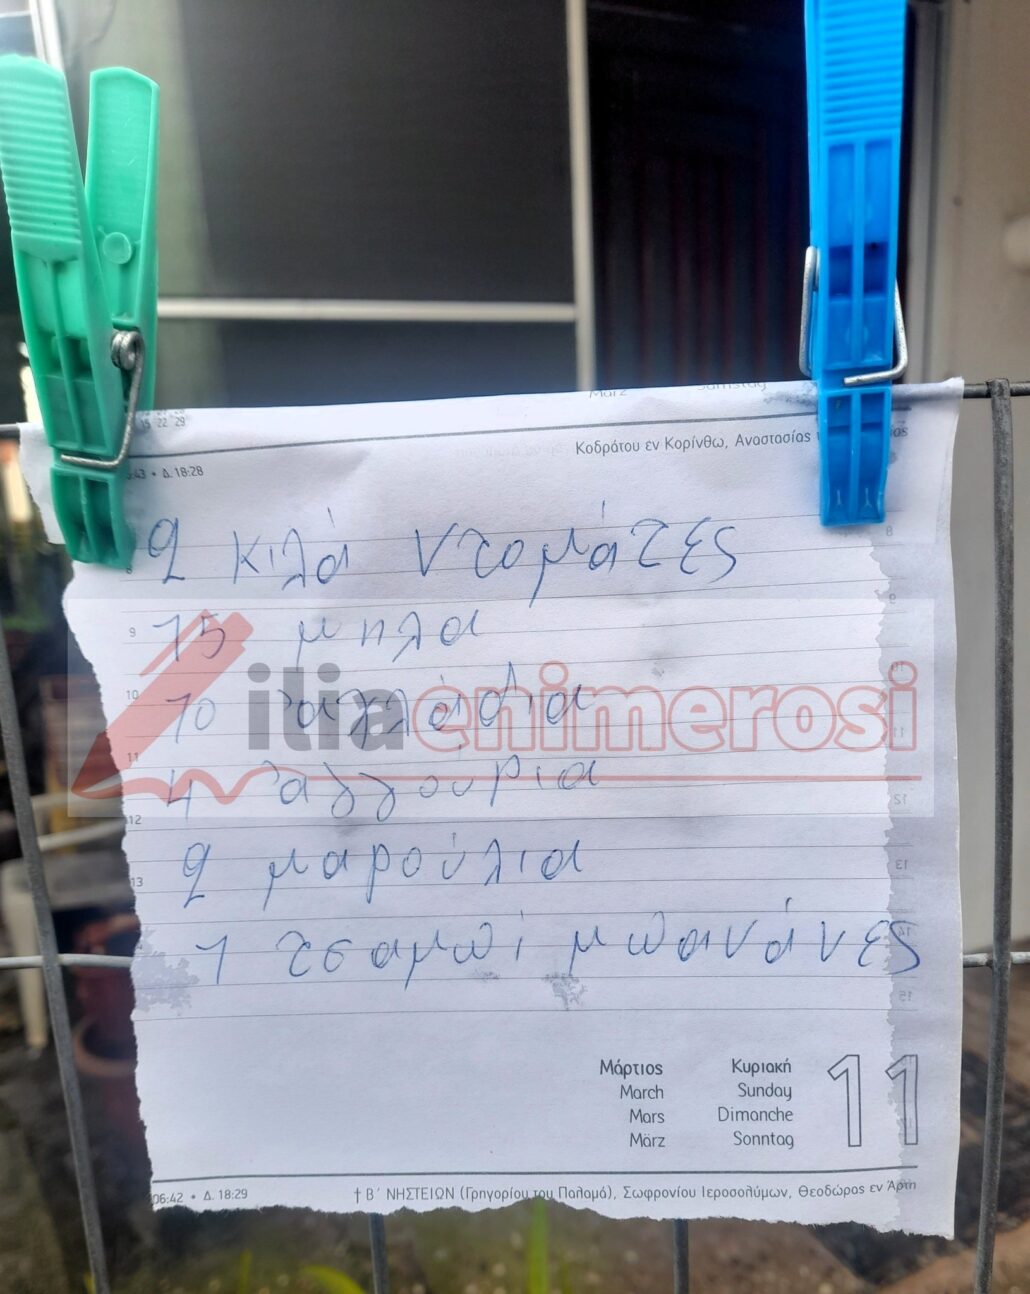 März Samstag
15 22 29
Κοδράτου εν Κορίνθω, Αναστασίας
:43 • Δ. 18:28
2 κιλά ντομάτες
8
9 15 μηλα
10 10 αχλάδια
11
4 αγγούρια
12
2 μαρούλια
13
1 τσαμπί μπανάνες
iliaenimerosi
Μάρτιος Κυριακή 11
March Sunday
Mars Dimanche
März Sonntag
06:42 • Δ. 18:29 † Β΄ ΝΗΣΤΕΙΩΝ (Γρηγορίου του Παλαμά), Σωφρονίου Ιεροσολύμων, Θεοδώρας εν Άρτη